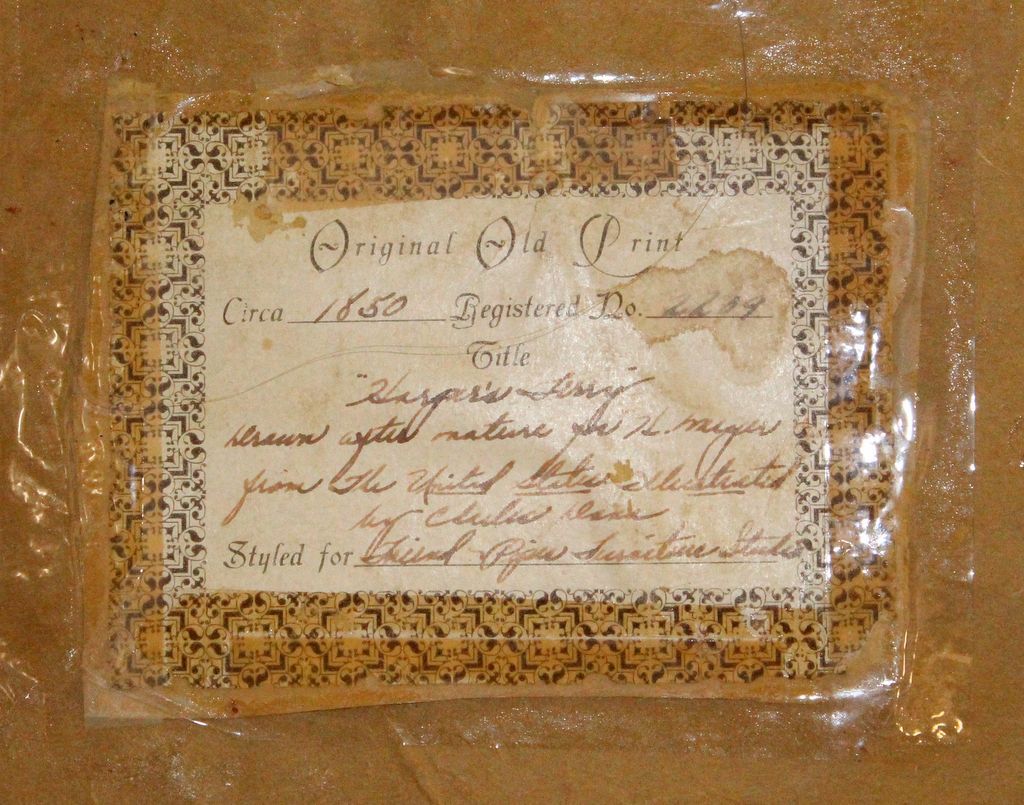 Original Old Print
Circa 1850 Registered No.
Title
"Harper's Ferry"
Drawn after nature for H. Meyer
from The United States Illustrated
by Charles Dana
Styled for Furniture Studio